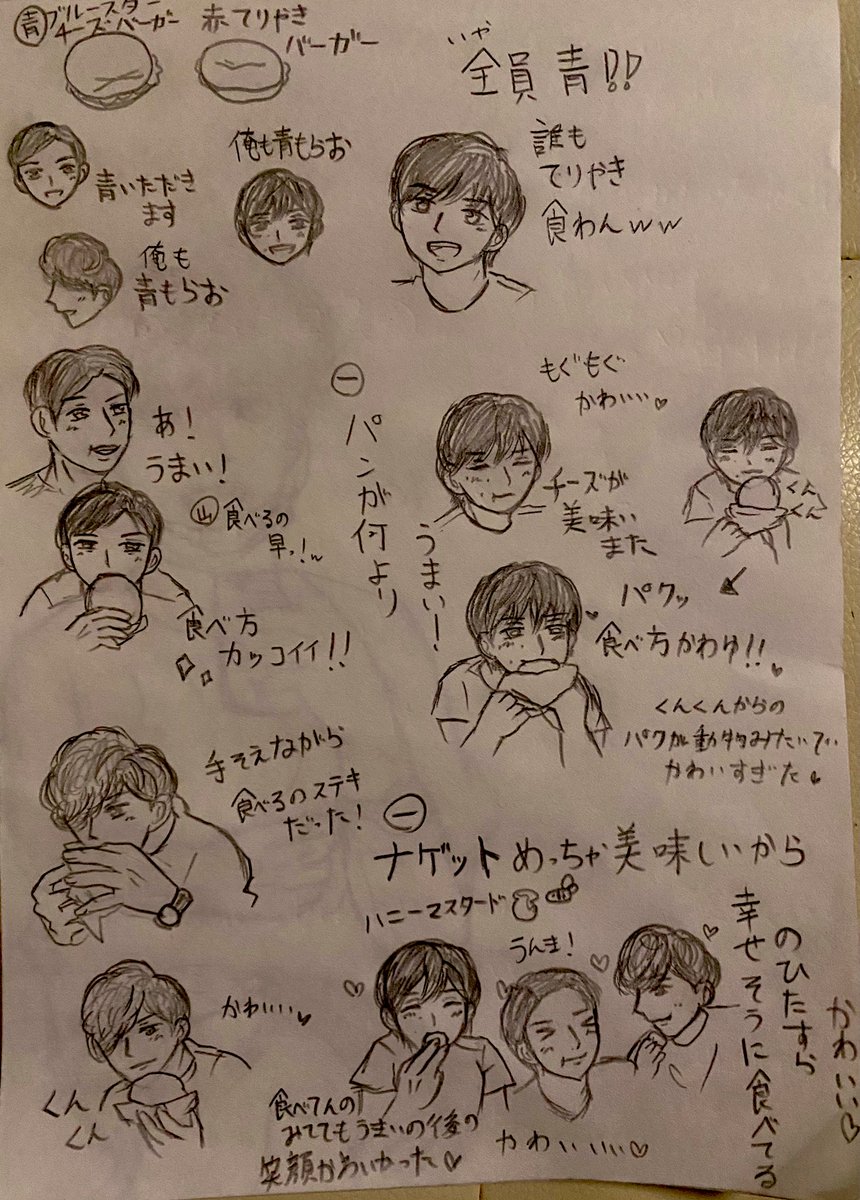 青 ブルースター
チーズバーガー
赤てりやき
バーガー
いや
全員青!!
青いただき
ます
俺も青もらお
俺も
青もらお
誰も
てりやき
食わんww
あ!
うまい!
山 食べるの
早っ!w
食べ方
カッコイイ!!
一
パンが何より
うまい!
もぐもぐ
かわいい♡
チーズが
美味い
また
くん
くん
パクッ
食べ方かわゆ!!
くんくんからの
パクが動物みたいで
かわいすぎた♡
手そえながら
食べるのステキ
だった!
一
ナゲットめっちゃ美味いから
ハニーマスタード
うんま!
かわいい♡
くん
くん
食べてんの
みててもうまいの後の
笑顔かわいかった♡
かわいいい♡
のひたすら
幸せそうに食べてる
かわいい♡